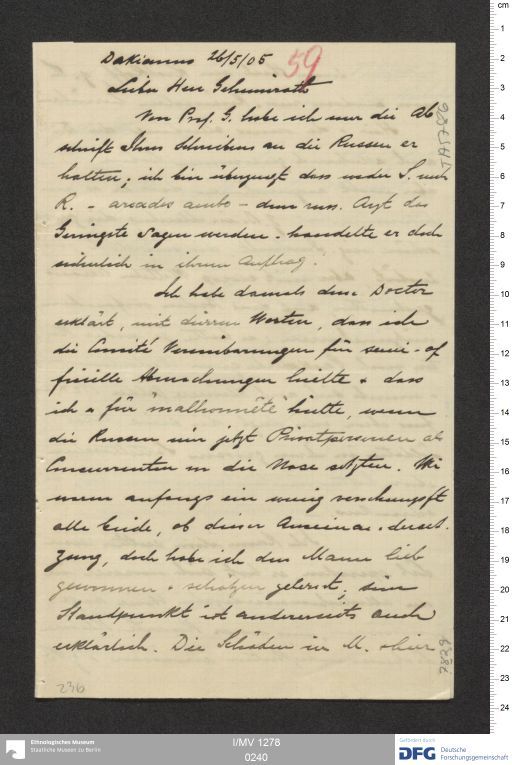 Dakianus 26/5/05
59
Lieber Herr Geheimrath
Von Prof. G. habe ich nur die Ab
schrift Ihres Schreibens an die Russen er
halten; ich bin überzeugt dass weder S. noch
R. - arcades ambo - dem russ. Arzt das
Geringste sagen werden. handelte er doch
sicherlich in ihrem Auftrag.
Ich habe damals dem Doctor
erklärt, mit dürren Worten, dass ich
die Comité Vereinbarungen für semi-of
ficielle Abmachungen hielte + dass
ich es für "malhonnête" hielte, wenn
die Russen mir jetzt Privatpersonen als
Concurrenten in die Nase setzten. Wir
waren anfangs ein wenig verschnupft
alle beide, ob dieser Auseinandersetz-
zung, doch habe ich den Mann lieb
gewonnen + schätzen gelernt; sein
Standpunkt ist andererseits auch
erklärlich. Die Schäden in M.
236
TA 5786
7829
cm
1
2
3
4
5
6
7
8
9
10
11
12
13
14
15
16
17
18
19
20
21
22
23
24
Ethnologisches Museum
Staatliche Museen zu Berlin
I/MV 1278
0240
Gefördert durch
DFG Deutsche
Forschungsgemeinschaft